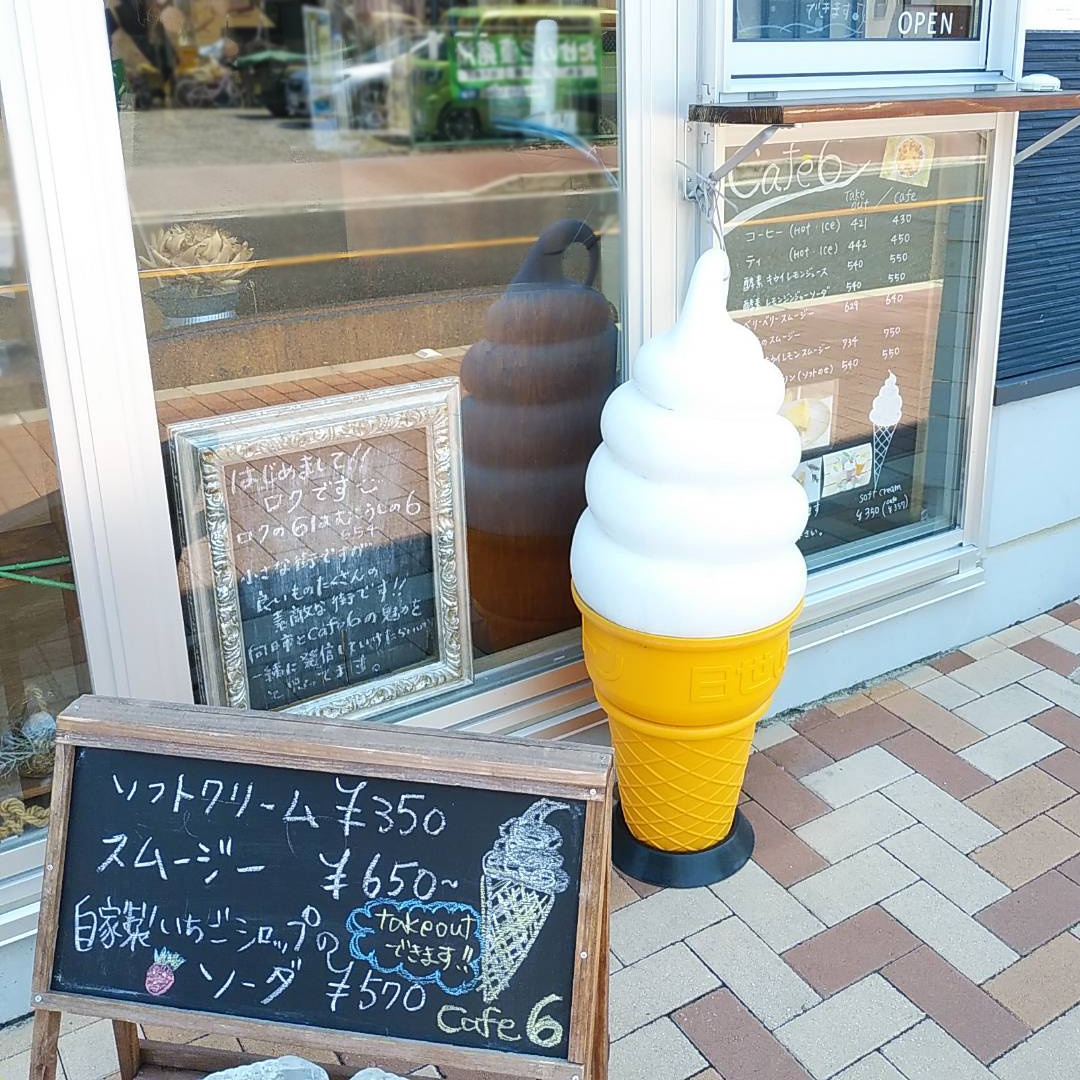 できます。
OPEN
Cafe6
Take out / Cafe
コーヒー (HOT・ICE) 421 430
ティ (HOT・ICE) 442 450
酵素 キウイレモンジュース 540 550
酵素 レモンジンジャーソーダ 540 550
ベリーベリースムージー 629 640
のスムージー 750
キウイレモンスムージー 734
リン(ソフトのせ) 540 550
soft cream
¥350 (cafe ¥357)
はじめまして!!
ロクです
ロクの6はむこうしの6
小さな街ですが
良いものたくさんの
素敵な街です!!
向日市とCafe6の魅力を
一緒に発信していけたらいいな
と思っています。
日世
ソフトクリーム ¥350
スムージー ¥650~
自家製いちごシロップの
ソーダ ¥570
takeout
できます!!
Cafe 6